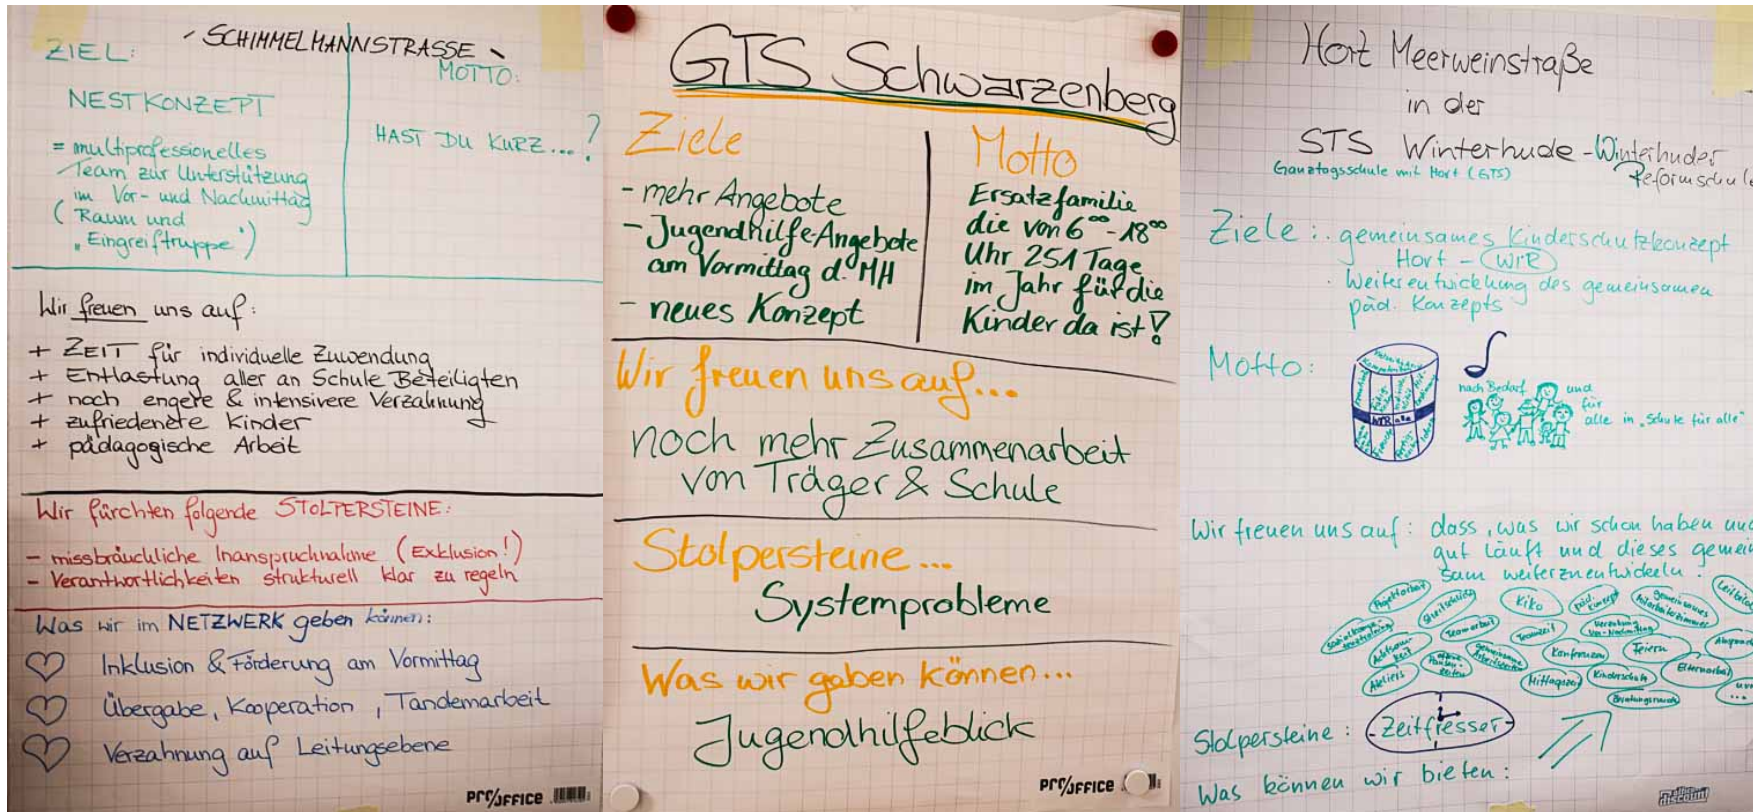 - SCHIMMELMANNSTRASSE -
ZIEL:
NESTKONZEPT
= multiprofessionelles
Team zur Unterstützung
im Vor- und Nachmittag
(Raum und
"Eingreiftruppe")
MOTTO:
HAST DU KURZ...?
Wir freuen uns auf:
+ ZEIT für individuelle Zuwendung
+ Entlastung aller an Schule Beteiligten
+ noch engere & intensivere Verzahnung
+ zufriedenere Kinder
+ pädagogische Arbeit
Wir fürchten folgende STOLPERSTEINE:
- missbräuchliche Inanspruchnahme (Exklusion!)
- Verantwortlichkeiten strukturell klar zu regeln
Was wir im NETZWERK geben können:
Inklusion & Förderung am Vormittag
Übergabe, Kooperation, Tandemarbeit
Verzahnung auf Leitungsebene
PRO/OFFICE
GTS Schwarzenberg
Ziele
- mehr Angebote
- Jugendhilfe-Angebote
am Vormittag d. MH
- neues Konzept
Motto
Ersatzfamilie
die von 6°° - 18°°
Uhr 251 Tage
im Jahr für die
Kinder da ist!
Wir freuen uns auf...
noch mehr Zusammenarbeit
von Träger & Schule
Stolpersteine...
Systemprobleme
Was wir geben können...
Jugendhilfeblick
PRO/OFFICE
Hort Meerweinstraße
in der
STS Winterhude - Winterhuder
Reformschule
Ganztagsschule mit Hort (GTS)
Ziele: · gemeinsames Kinderschutzkonzept
Hort - WiR
· Weiterentwicklung des gemeinsamen
päd. Konzepts
Motto:
WIR alle
nach Bedarf
und
für
alle in "Schule für alle"
Wir freuen uns auf: dass, was wir schon haben und
gut läuft und dieses gemein
sam weiterzuentwickeln.
Projektarbeit
Kiko
päd. Konzept
gemeinsames
Mitarbeiterzimmer
Teamarbeit
Teamzeit
Verzahnung
Vor-Nachmittag
Achtsam-
keit
offene
Pausen-
zeiten
gemeinsame
Arbeitszeiten
Konferenzen
Feiern
Ateliers
Mittagszeit
Kinderschutz
Elternarbeit
...
Stolpersteine: -Zeitfresser-
Was können wir bieten:
discount